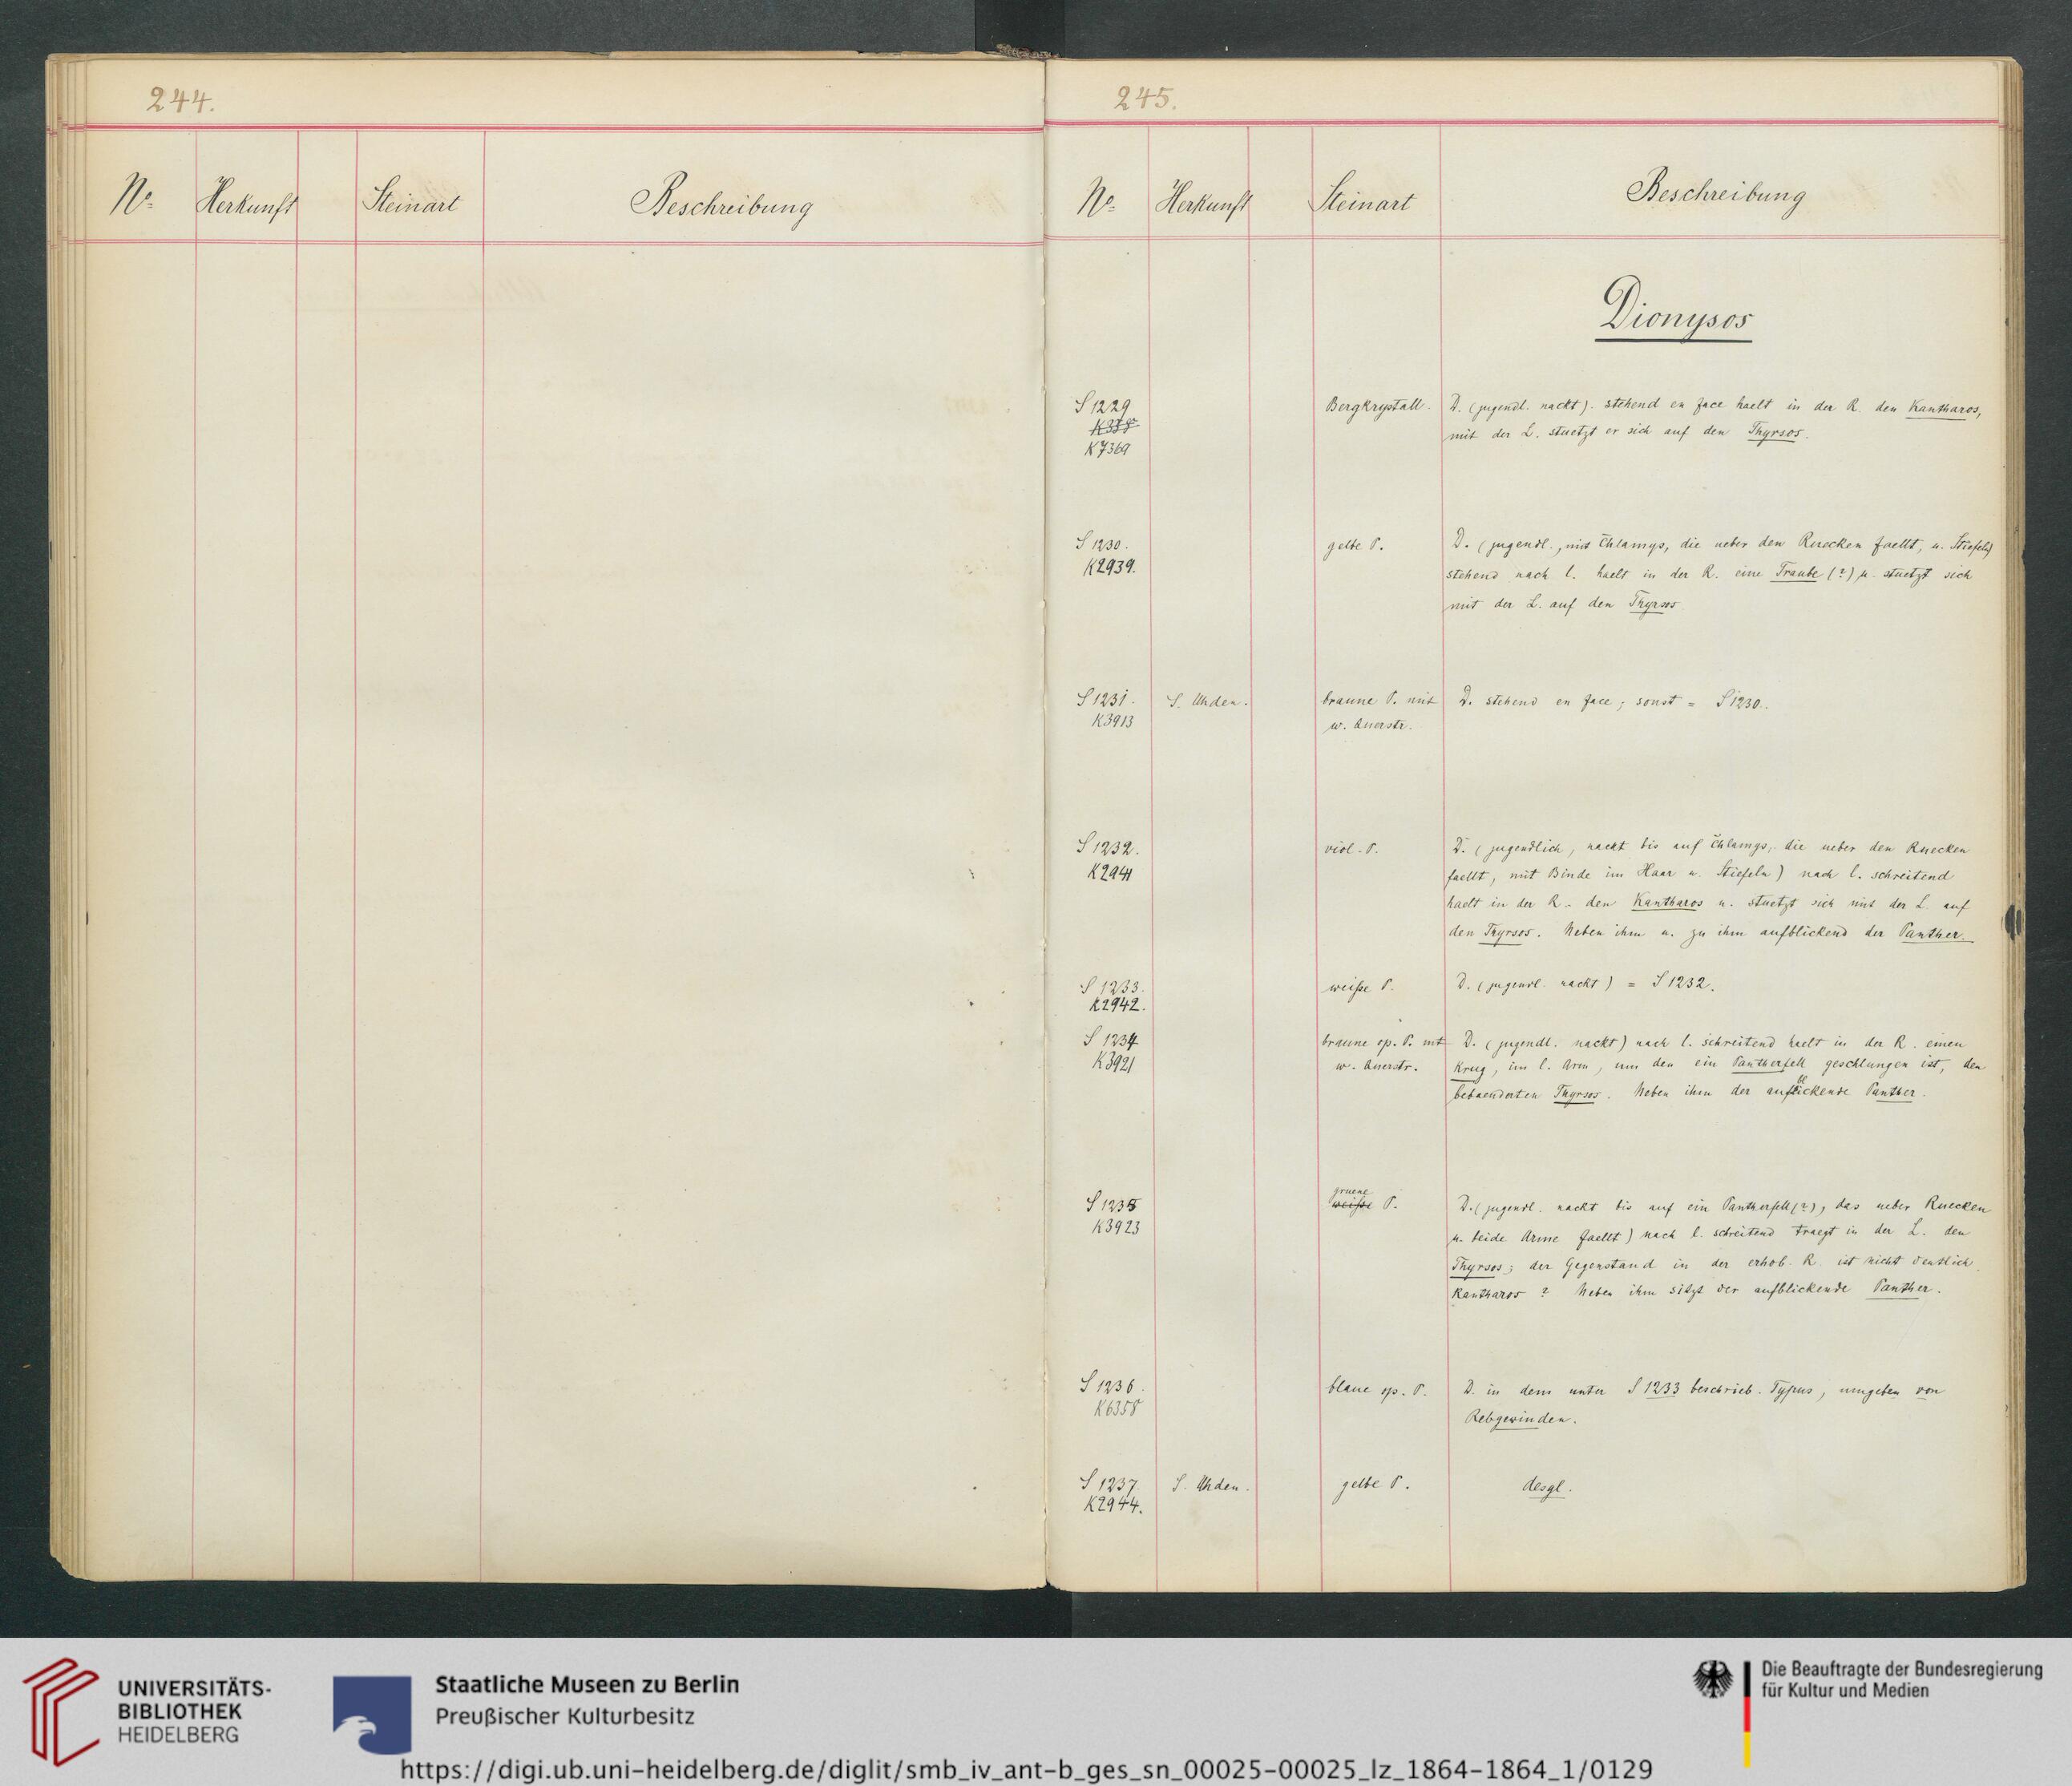 244.
No. Herkunft Steinart Beschreibung
245.
No. Herkunft Steinart Beschreibung
Dionysos
S 1229 Bergkrystall. D. (jugendl. nackt). stehend en face haelt in der R. den Kantharos,
K338 mit der L. stuetzt er sich auf den Thyrsos.
K7369
S 1230. gelbe P. D. (jugendl., mit Chlamys, die ueber den Ruecken faellt, u. Stiefeln)
K2939. stehend nach l. haelt in der R. eine Traube (?) u. stuetzt sich
mit der L. auf den Thyrsos
S 1231. S. Uhden. braune P. mit D. stehend en face, sonst = S 1230.
K3913 w. Querstr.
S 1232. viol. P. D. (jugendlich, nackt bis auf Chlamys, die ueber den Ruecken
K2941 faellt, mit Binde im Haar u. Stiefeln) nach l. schreitend
haelt in der R. den Kantharos u. stuetzt sich mit der L. auf
den Thyrsos. Neben ihm u. zu ihm aufblickend der Panther.
S 1233. weiße P. D. (jugendl. nackt) = S 1232.
K2942.
S 1234 braune op. P. mt D. (jugendl. nackt) nach l. schreitend haelt in der R. einen
K3921 w. Querstr. Krug, im l. Arm, um den ein Pantherfell geschlungen ist, den
bebaenderten Thyrsos. Neben ihm der aufblickende Panther.
gruene
S 1235 weiße P. D. (jugendl. nackt bis auf ein Pantherfell (?), das ueber Ruecken
K3923 u. beide Arme faellt) nach l. schreitend traegt in der L. den
Thyrsos; der Gegenstand in der erhob. R. ist nicht deutlich.
Kantharos? Neben ihm sitzt der aufblickende Panther.
S 1236. blaue op. P. D. in dem unter S 1233 beschrieb. Typus, umgeben von
K6358 Rebgewinden.
S 1237. S. Uhden. gelbe P. desgl.
K2944.
UNIVERSITÄTS-
BIBLIOTHEK
HEIDELBERG
Staatliche Museen zu Berlin
Preußischer Kulturbesitz
Die Beauftragte der Bundesregierung
für Kultur und Medien
https://digi.ub.uni-heidelberg.de/diglit/smb_iv_ant-b_ges_sn_00025-00025_lz_1864-1864_1/0129